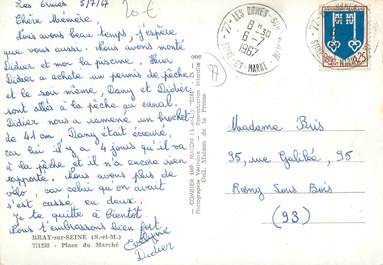 Les Ormes 5/7/67
20€
Chère Mémère.
Nous avons beau temps, j'espère
que vous aussi. Nous avons monté
Didier et moi la piscine. Hier
Didier a acheté un permis de pêche
et le soir même, Dany et Didier
sont allés à la pêche au canal.
Didier nous a ramené un brochet
de 41 cm. Dany était écœuré,
car lui il y a 4 jours qu'il va
à la pêche et il n'a encore rien
rapporté. Nous avons plus de
vélo car celui qu'on avait
s'est cassé en deux.
Je te quitte à bientôt.
Nous t'embrassons bien fort
Evelyne
Didier
BRAY-sur-SEINE (S.-et-M.)
771233 - Place du Marché
COMBIER IMP. MACON (S.-et-L.) "CIM"
Photographie Véritable - Reproduction Interdite
Coll. Maison de la Presse
77
77 - LES ORMES-SUR-
8H30
6-7
1967
SEINE-ET-MARNE
Madame Bris
95, rue Galilée, 95
Rosny Sous Bois
(93)